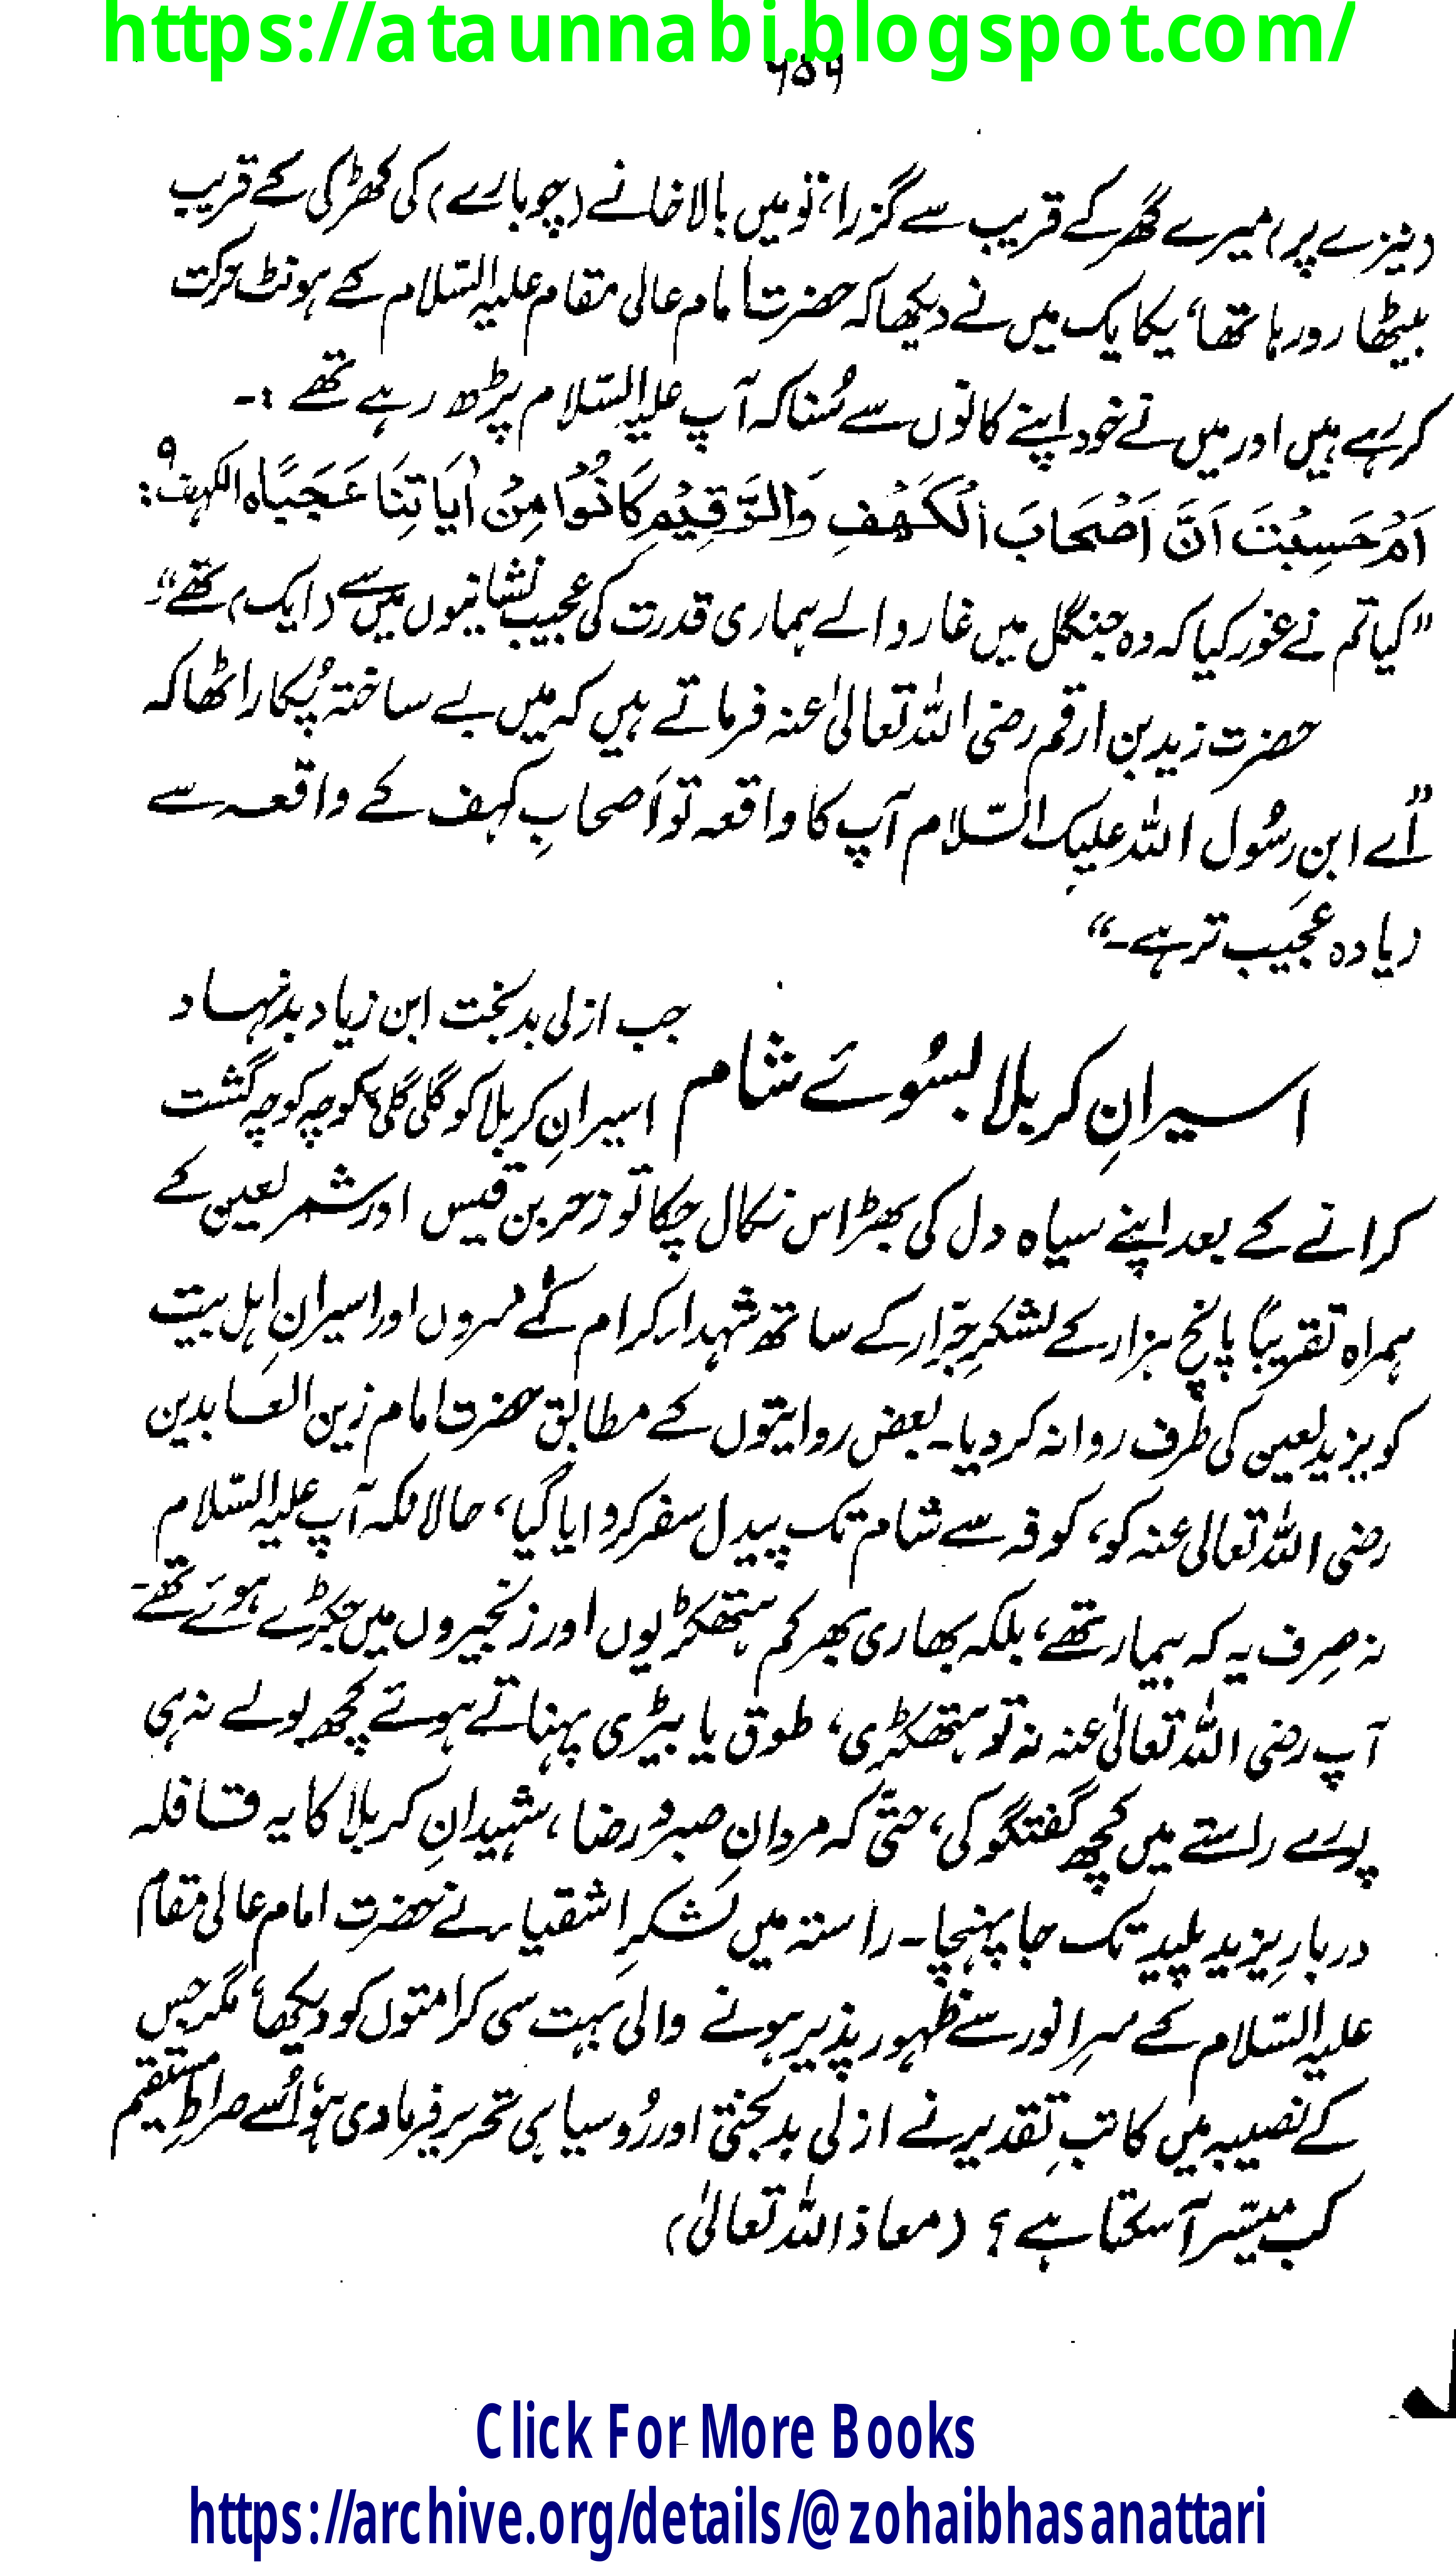 https://ataunnabi.blogspot.com/
۶۵۶
(نیزے پر) میرے گھر کے قریب سے گزرا، تو میں بالاخانے (چوبارے) کی کھڑکی کے قریب
بیٹھا رو رہا تھا، یکایک میں نے دیکھا کہ حضرت امام عالی مقام علیہ السّلام کے ہونٹ حرکت
کر رہے ہیں اور میں نے خود اپنے کانوں سے سُنا کہ آپ علیہ السّلام پڑھ رہے تھے :۔
اَمْ حَسِبْتَ اَنَّ اَصْحَابَ الْکَهْفِ وَالرَّقِیْمِ کَانُوْا مِنْ اٰیَاتِنَا عَجَبًاہ الکہف : ۹
”کیا تم نے غور کیا کہ وہ جنگل میں غار والے ہماری قدرت کی عجیب نشانیوں میں سے (ایک) تھے“۔
حضرت زید بن ارقم رضی اللہ تعالیٰ عنہ فرماتے ہیں کہ میں بے ساختہ پُکار اٹھا کہ
”اے ابنِ رسُول اللہ علیک السّلام آپ کا واقعہ تو اَصحابِ کہف کے واقعہ سے
زیادہ عجیب تر ہے۔“
اسیرانِ کربلا بسُوئے شام
جب ازلی بدبخت ابن زیاد بدنہاد
اسیرانِ کربلا کو گلی گلی، کوچہ کوچہ گشت
کرانے کے بعد اپنے سیاہ دل کی بھڑاس نکال چکا تو زحر بن قیس اور شمر لعین کے
ہمراہ تقریباً پانچ ہزار کے لشکرِ جرّار کے ساتھ شہداء کرام کے سروں اور اسیرانِ اہل بیت
کو یزید لعین کی طرف روانہ کر دیا۔ بعض روایتوں کے مطابق حضرت امام زین العابدین
رضی اللہ تعالیٰ عنہ کو، کوفہ سے شام تک پیدل سفر کروایا گیا، حالانکہ آپ علیہ السّلام
نہ صِرف یہ کہ بیمار تھے، بلکہ بھاری بھر کم ہتھکڑیوں اور زنجیروں میں جکڑے ہوئے تھے۔
آپ رضی اللہ تعالیٰ عنہ نہ تو ہتھکڑی، طوق یا بیڑی پہناتے ہوتے کچھ بولے نہ ہی
پورے راستے میں کچھ گفتگو کی، حتّٰی کہ مردانِ صبر و رضا، شہیدانِ کربلا کا یہ قافلہ
دربارِ یزید پلید تک جا پہنچا۔ راستہ میں لشکرِ اشقیاء نے حضرت امام عالی مقام
علیہ السّلام کے سرِ انور سے ظہور پذیر ہونے والی بہت سی کرامتوں کو دیکھا، مگر جس
کے نصیبہ میں کاتبِ تقدیر نے ازلی بدبختی اور رُوسیاہی تحریر فرما دی ہو، اُسے صراطِ مستقیم
کب میسّر آ سکتا ہے ؟ (معاذ اللہ تعالیٰ)
Click For More Books
https://archive.org/details/@zohaibhasanattari